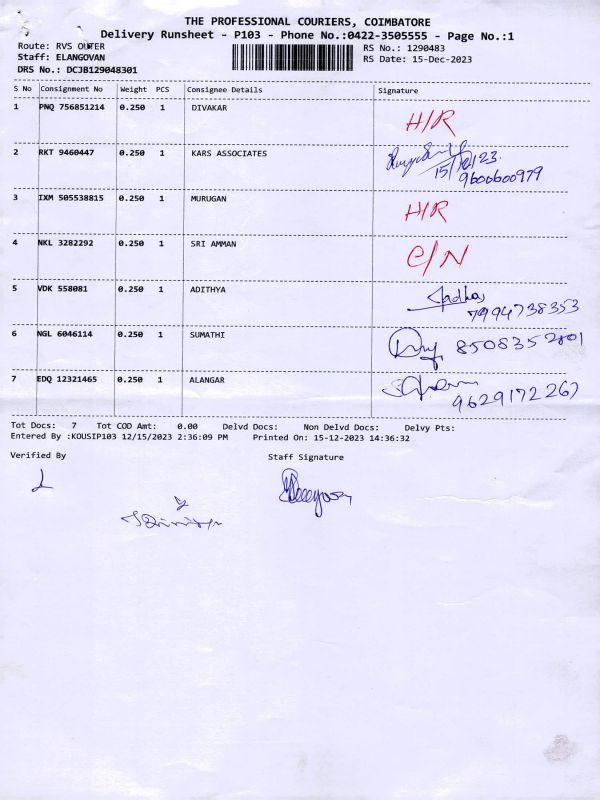 THE PROFESSIONAL COURIERS, COIMBATORE
Delivery Runsheet - P103 - Phone No.:0422-3505555 - Page No.:1
Route: RVS OUTER
RS No.: 1290483
Staff: ELANGOVAN
RS Date: 15-Dec-2023
DRS No.: DCJB129048301
S No Consignment No Weight PCS Consignee Details Signature
1 PNQ 756851214 0.250 1 DIVAKAR H/R
2 RKT 9460447 0.250 1 KARS ASSOCIATES 15/12/23.
9600600979
3 IXM 505538815 0.250 1 MURUGAN H/R
4 NKL 3282292 0.250 1 SRI AMMAN C/N
5 VDK 558081 0.250 1 ADITHYA
7994738353
6 NGL 6046114 0.250 1 SUMATHI 8508352801
7 EDQ 12321465 0.250 1 ALANGAR
9629172267
Tot Docs: 7 Tot COD Amt: 0.00 Delvd Docs: Non Delvd Docs: Delvy Pts:
Entered By :KOUSIP103 12/15/2023 2:36:09 PM Printed On: 15-12-2023 14:36:32
Verified By Staff Signature